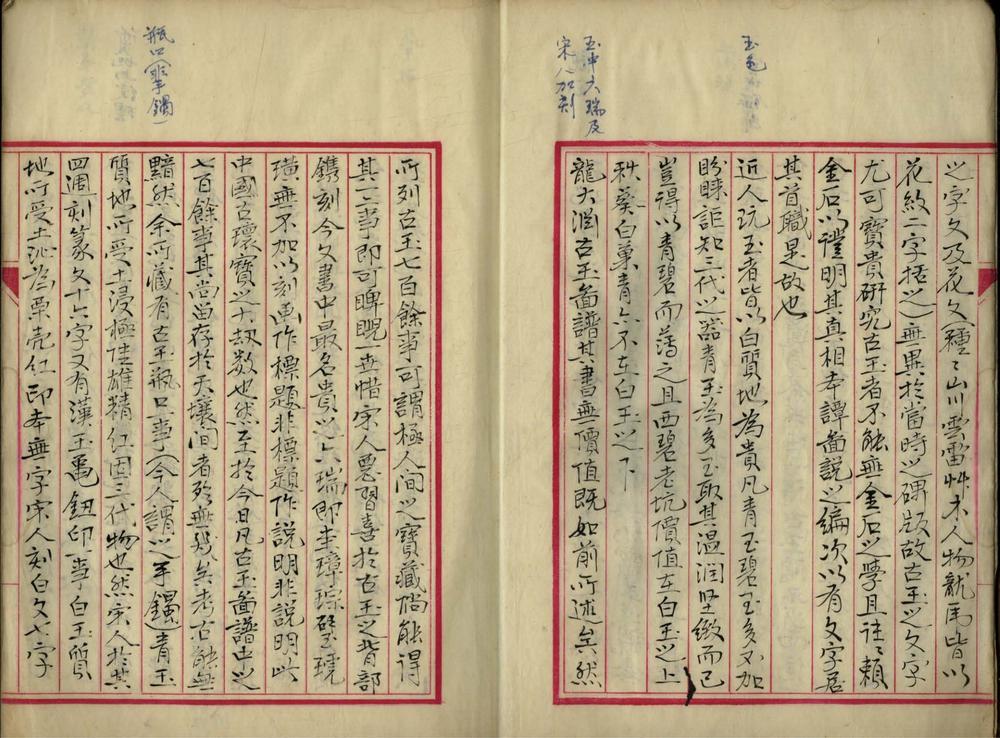 玉色
玉中六瑞及
宋人加刻
之字文及花文(種々山川雲雷艸木人物龍馬皆以
花紋二字括之)無異於當時之碑版故古玉之文字
尤可寶貴研究古玉者不能無金石之學且往々賴
金石以證明其真相本譚圖說之編次以有文字居
其首職是故也
近人玩玉者皆以白質地為貴凡青玉碧玉多不加
盼睞詎知三代之器青玉為多玉取其溫潤堅緻而已
豈得以青碧而薄之且西碧老坑價值在白玉之上
秋葵白菓青亦不在白玉之下
龍大淵古玉圖譜其書無價值既如前所述矣然
瓶口(非手鐲)
所列古玉七百餘事可謂極人间之寶藏倘能得
其一二事即可睥睨一世惜宋人惡習喜於古玉之背部
鐫刻今文書中最名貴之六瑞即圭璋琮璧琥
璜無不加以刻画作標題非標題作說明非說明此
中國古瓌寶之大劫数也然至於今日凡古玉圖譜中之
七百餘事其尚留存於天壤间者殆無幾矣考古能無
黯然余所藏有古玉瓶口一事(今人謂之手鐲)青玉
質地所受土浸極佳雄精红因三代物也然宋人於其
四週刻篆文十六字又有漢玉龜鈕印一事白玉質
地所受土沁為栗壳红印本無字宋人刻白文七字